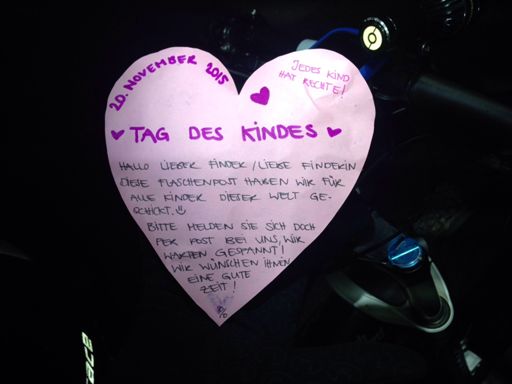 20. NOVEMBER 2015
JEDES KIND
HAT RECHTE!
TAG DES KINDES
HALLO LIEBER FINDER / LIEBE FINDERIN
DIESE FLASCHENPOST HABEN WIR FÜR
ALLE KINDER DIESER WELT GE-
SCHICKT. ☺
BITTE MELDEN SIE SICH DOCH
PER POST BEI UNS, WIR
WARTEN GESPANNT!
WIR WÜNSCHEN IHNEN
EINE GUTE
ZEIT!